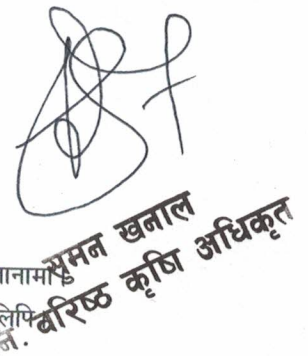 सुमन खनाल
वरिष्ठ कृषि अधिकृत